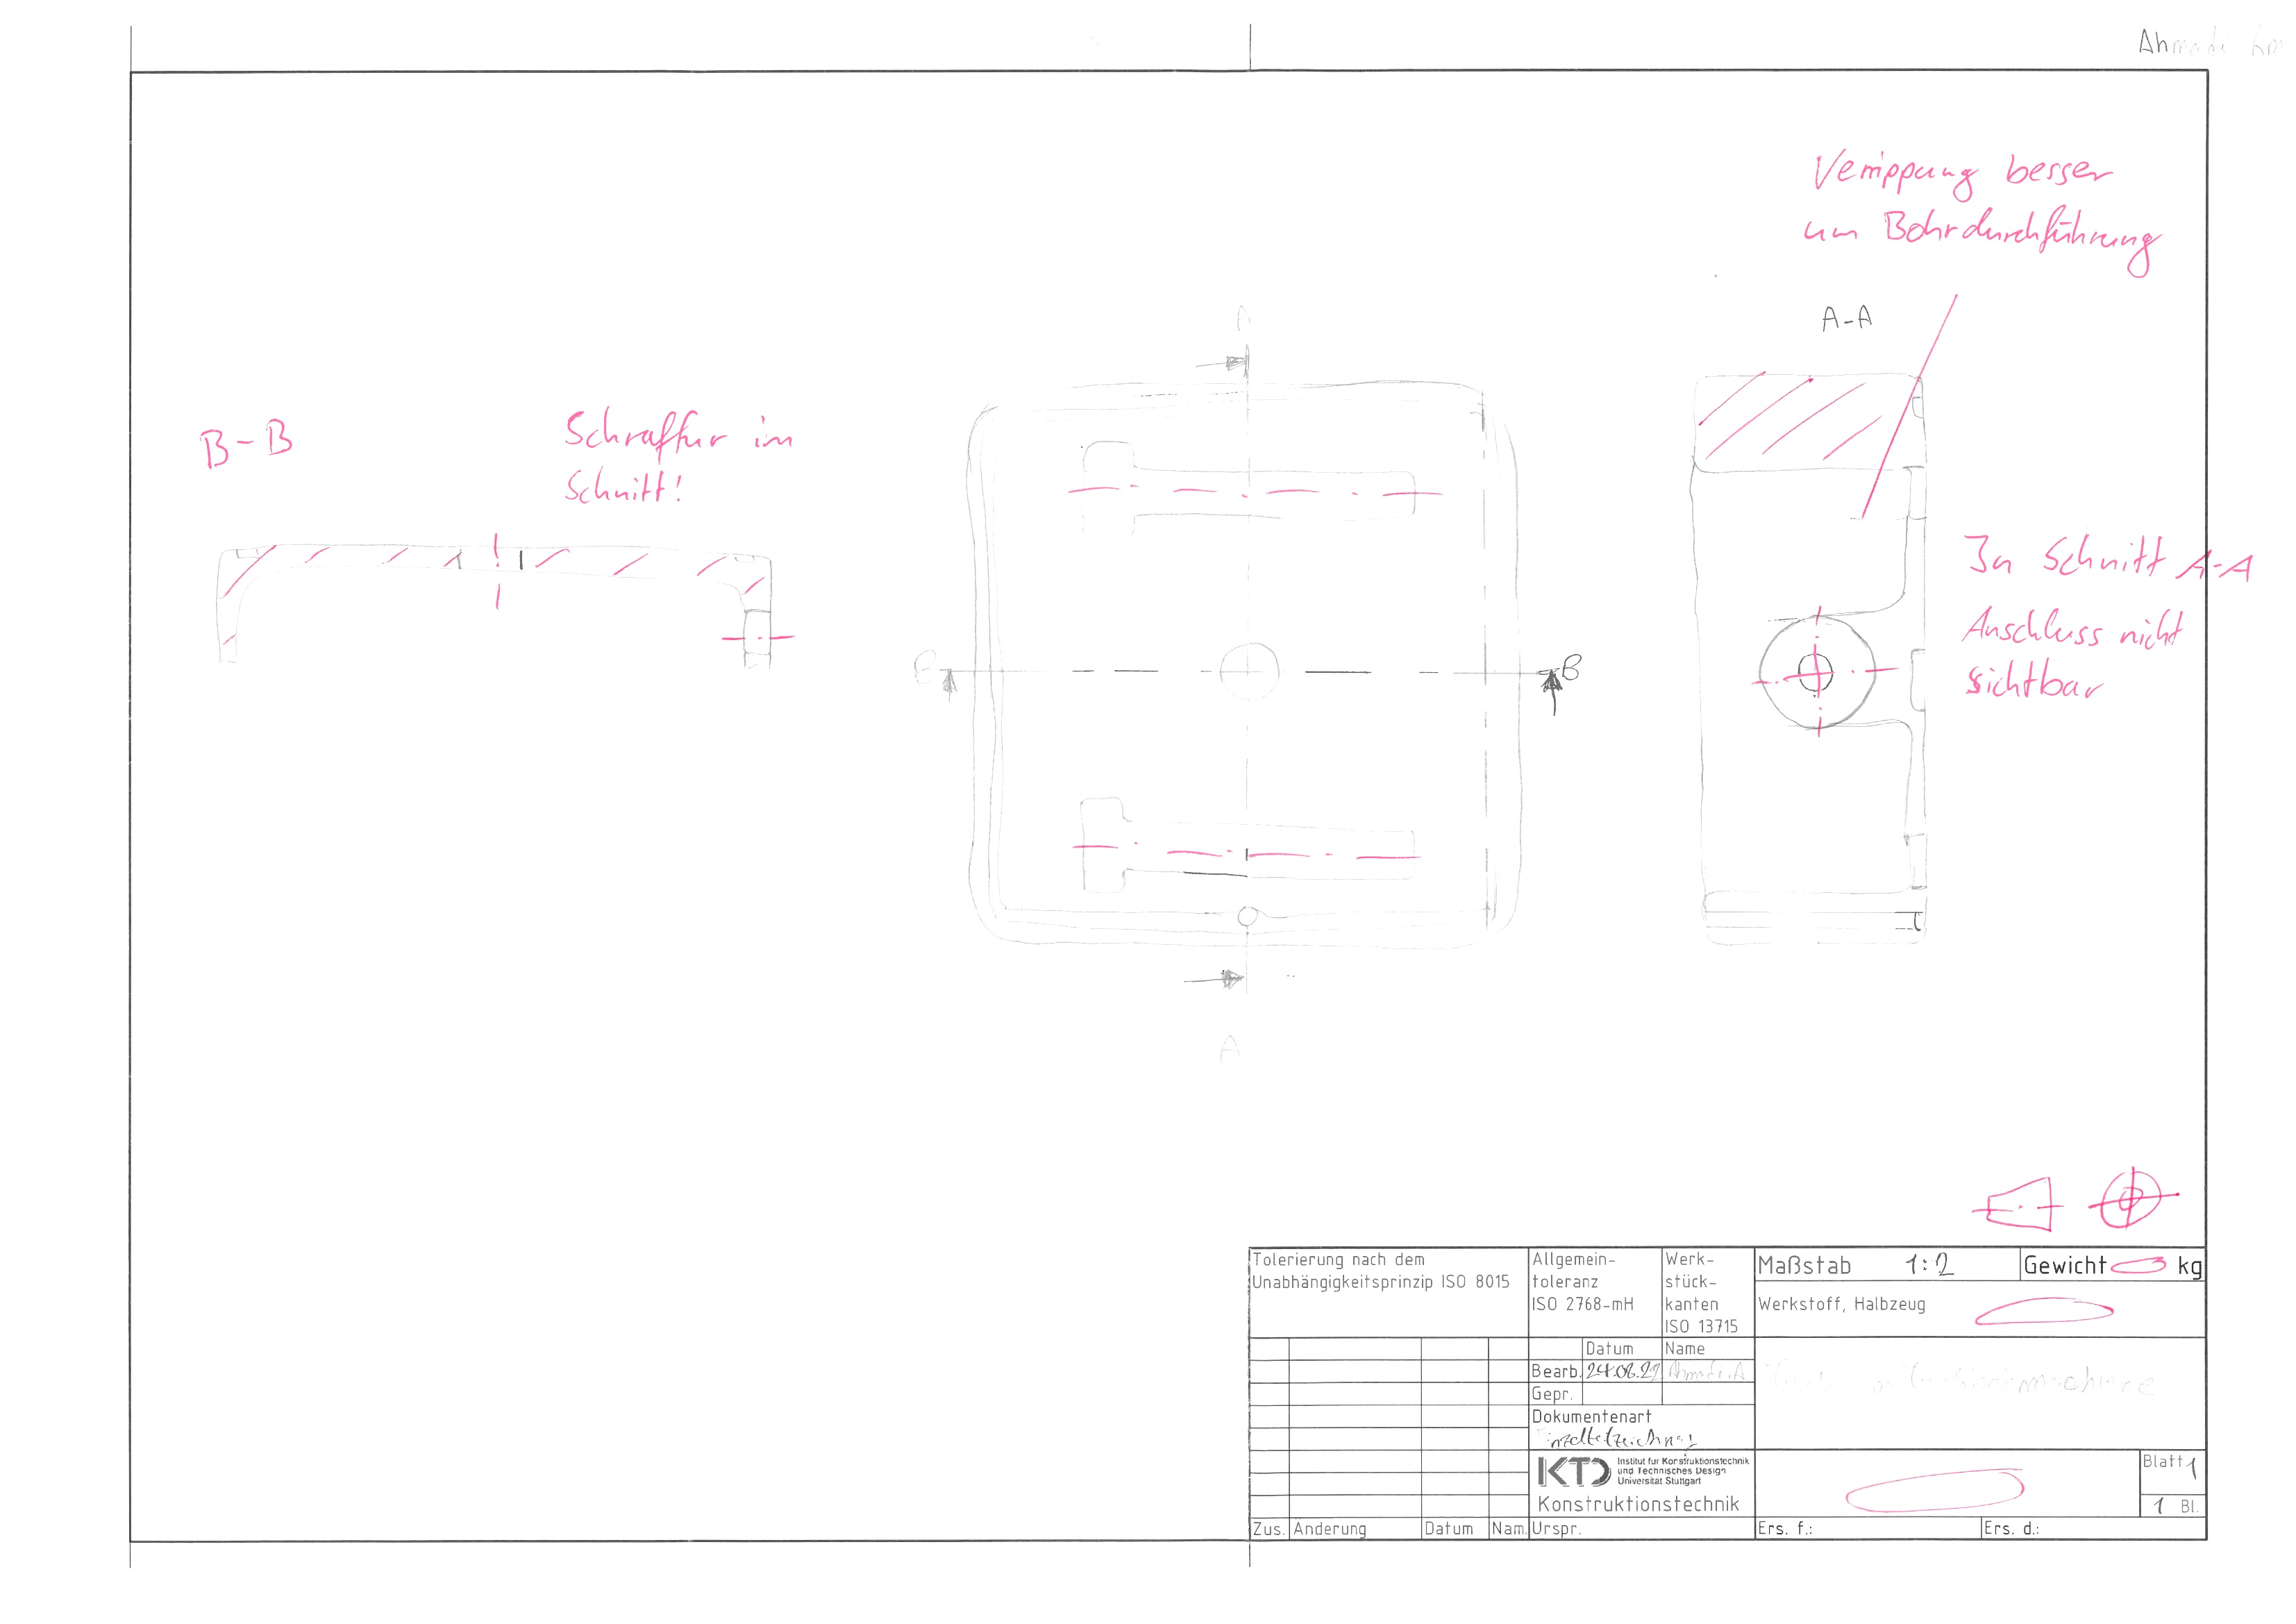 Verrippung besser
um Bohrdurchführung
A
A-A
B-B
Schraffur im
Schnitt!
In Schnitt A-A
Anschluss nicht
sichtbar
B
B
A
Tolerierung nach dem
Unabhängigkeitsprinzip ISO 8015
Allgemein-
toleranz
ISO 2768-mH
Werk-
stück-
kanten
ISO 13715
Maßstab 1:2
Gewicht kg
Werkstoff, Halbzeug
Datum Name
Bearb. 24.08.22 Ahmadi.A
Gepr.
Dokumentenart
KTD
Institut für Konstruktionstechnik
und Technisches Design
Universität Stuttgart
Konstruktionstechnik
Blatt 1
1 Bl.
Zus. Änderung Datum Nam. Urspr. Ers. f.: Ers. d.: